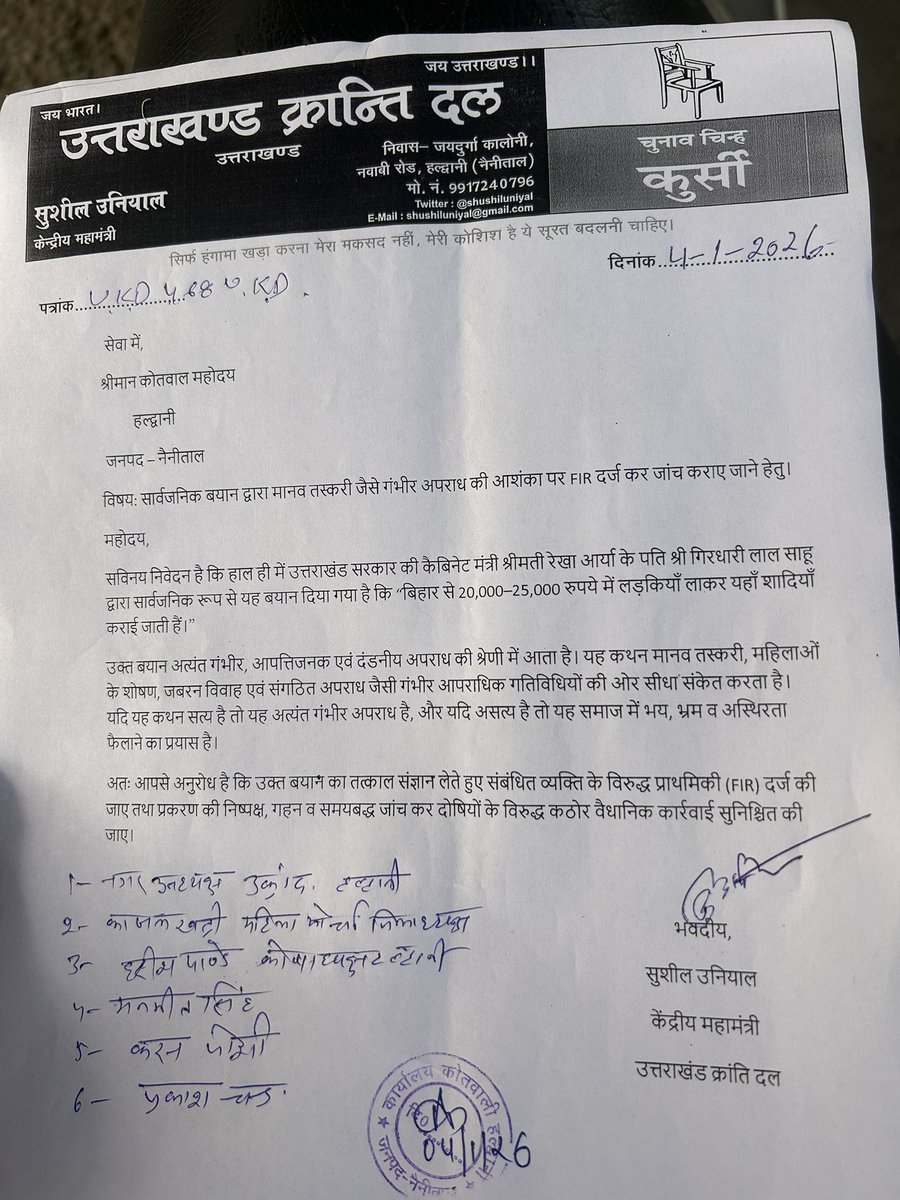 जय भारत।
जय उत्तराखण्ड।।
उत्तराखण्ड क्रान्ति दल
उत्तराखण्ड
सुशील उनियाल
केन्द्रीय महामंत्री
निवास– जयदुर्गा कालोनी,
नवाबी रोड, हल्द्वानी (नैनीताल)
मो. नं. 9917240796
Twitter : @shushiluniyal
E-Mail : shushiluniyal@gmail.com
चुनाव चिन्ह
कुर्सी
सिर्फ हंगामा खड़ा करना मेरा मकसद नहीं, मेरी कोशिश है ये सूरत बदलनी चाहिए।
पत्रांक U.KD 468 U.KD.
दिनांक 4-1-2026
सेवा में,
श्रीमान कोतवाल महोदय
हल्द्वानी
जनपद – नैनीताल
विषय: सार्वजनिक बयान द्वारा मानव तस्करी जैसे गंभीर अपराध की आशंका पर FIR दर्ज कर जांच कराए जाने हेतु।
महोदय,
सविनय निवेदन है कि हाल ही में उत्तराखंड सरकार की कैबिनेट मंत्री श्रीमती रेखा आर्या के पति श्री गिरधारी लाल साहू
द्वारा सार्वजनिक रूप से यह बयान दिया गया है कि “बिहार से 20,000–25,000 रुपये में लड़कियाँ लाकर यहाँ शादियाँ
कराई जाती हैं।”
उक्त बयान अत्यंत गंभीर, आपत्तिजनक एवं दंडनीय अपराध की श्रेणी में आता है। यह कथन मानव तस्करी, महिलाओं
के शोषण, जबरन विवाह एवं संगठित अपराध जैसी गंभीर आपराधिक गतिविधियों की ओर सीधा संकेत करता है।
यदि यह कथन सत्य है तो यह अत्यंत गंभीर अपराध है, और यदि असत्य है तो यह समाज में भय, भ्रम व अस्थिरता
फैलाने का प्रयास है।
अतः आपसे अनुरोध है कि उक्त बयान का तत्काल संज्ञान लेते हुए संबंधित व्यक्ति के विरुद्ध प्राथमिकी (FIR) दर्ज की
जाए तथा प्रकरण की निष्पक्ष, गहन व समयबद्ध जांच कर दोषियों के विरुद्ध कठोर वैधानिक कार्रवाई सुनिश्चित की
जाए।
1- नगर अध्यक्ष उक्रांद. हल्द्वानी
2- काजल खत्री महिला मोर्चा जिलाध्यक्ष
3- हरीश पाण्डे कोषाध्यक्ष हल्द्वानी
4- मनमीत सिंह
5- करन जोशी
6- प्रकाश चन्द्र
भवदीय,
सुशील उनियाल
केंद्रीय महामंत्री
उत्तराखंड क्रांति दल
कार्यालय कोतवाली हल्द्वानी
जनपद-नैनीताल
04/1/26